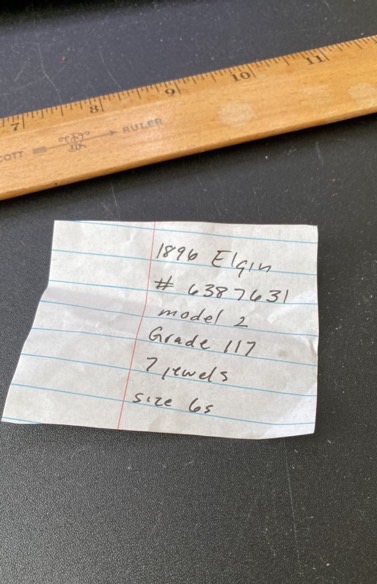 7 8 9 10 11
COTT RULER
1896 Elgin
# 6387631
model 2
Grade 117
7 jewels
size 6s